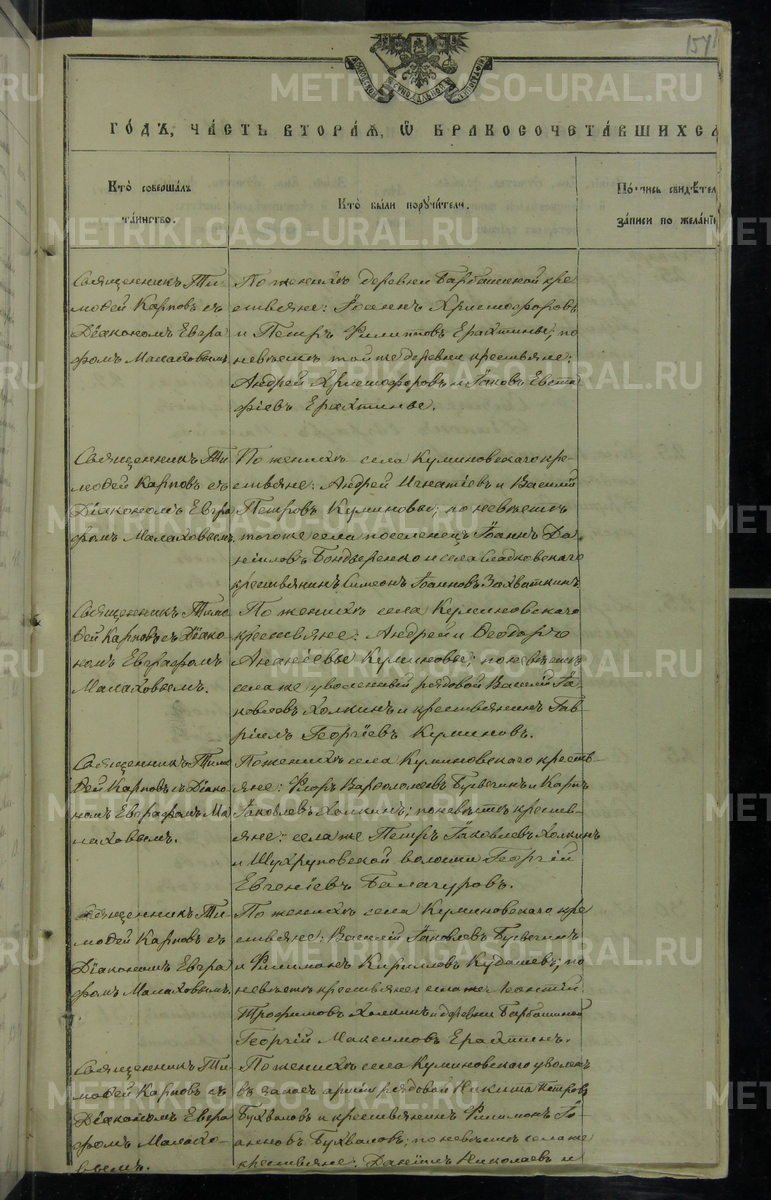 151
ГО́ДЪ, ЧА́СТЬ ВТОРА́Я, Ѡ҆ БРАКОСОЧЕТА́ВШИХСѦ
Кто̀ соверша́лъ
та́инство.
Кто̀ бы́ли поручи́тели.
По́дпись свидѣ́тел
за́писи по жела́нїю
Священникъ Ти-
мофей Карповъ съ
Дiакономъ Евгра
фомъ Малаховымъ
По женихѣ деревни Барбашиной кре-
стьяне: Iоаннъ Христофоровъ
и Петръ Филипповъ Ерахтины; по
невѣстѣ той же деревни крестьяне:
Андрей Христофоровъ и Iаковъ Евста
фiевъ Ерахтины.
Священникъ Ти-
мофей Карповъ съ
Дiакономъ Евгра
фомъ Малаховымъ
По женихѣ села Куминовскаго кре-
стьяне: Андрей Игнатiевъ и Василiй
Петровъ Куминовы; по невѣстѣ
того же села поселенецъ Iоаннъ Да-
нiиловъ Бондаренко и села Сладковскаго
крестьянинъ Симеонъ Iоанновъ Захваткинъ
Священникъ Тимо
фей Карповъ съ Дiако-
номъ Евграфомъ
Малаховымъ.
По женихѣ села Куминовскаго
крестьяне: Андрей и Ѳеодоръ
Ананiевы Куминовы; по невѣстѣ
села же уволенный рядовой Василiй Iа-
ковлевъ Холкинъ и крестьянинъ Гав-
рiилъ Георгiевъ Куминовъ.
Священникъ Тимо
фей Карповъ съ Дiако-
номъ Евграфомъ Ма
лаховымъ.
По женихѣ села Куминовскаго кресть-
яне: Флоръ Варфоломеевъ и Карпъ
Iаковлевъ Холкинъ; по невѣстѣ кресть-
яне: села же Петръ Iаковлевъ Холкинъ
и Шухруповской волости Георгiй
Евгенiевъ Балагуровъ.
Священникъ Ти-
мофей Карповъ съ
Дiакономъ Евгра
фомъ Малаховымъ.
По женихѣ села Куминовскаго кре
стьяне: Василiй Iаковлевъ
и Филимонъ Кирилловъ Кудашевъ; по
невѣстѣ крестьяне: села же
Трофимовъ Холкинъ и деревни Барбашиной
Георгiй Максимовъ Ерахтинъ.
Священникъ Ти-
мофей Карповъ съ
Дiакономъ Евгра
фомъ Малахо-
вымъ.
По женихѣ села Куминовскаго уволен.
въ запасъ армiи рядовой Никита Петровъ
Бухваловъ и крестьянинъ Филимонъ Iо-
анновъ Бухваловъ; по невѣстѣ села же
крестьяне: Данiилъ Николаевъ и
METRIKI.GASO-URAL.RU